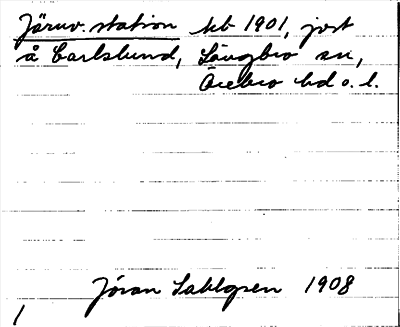 Järnv. station kb 1901, jort
å Carlslund, Längbro sn,
Örebro hd o. l.
Jöran Sahlgren 1908
1